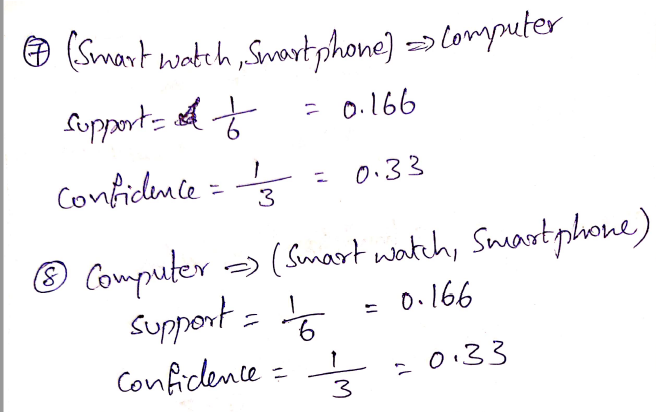 ⑦ (Smart watch, Smartphone) ⇒ Computer
Support = 1/6 = 0.166
Confidence = 1/3 = 0.33
⑧ Computer ⇒ (Smart watch, Smartphone)
Support = 1/6 = 0.166
Confidence = 1/3 = 0.33